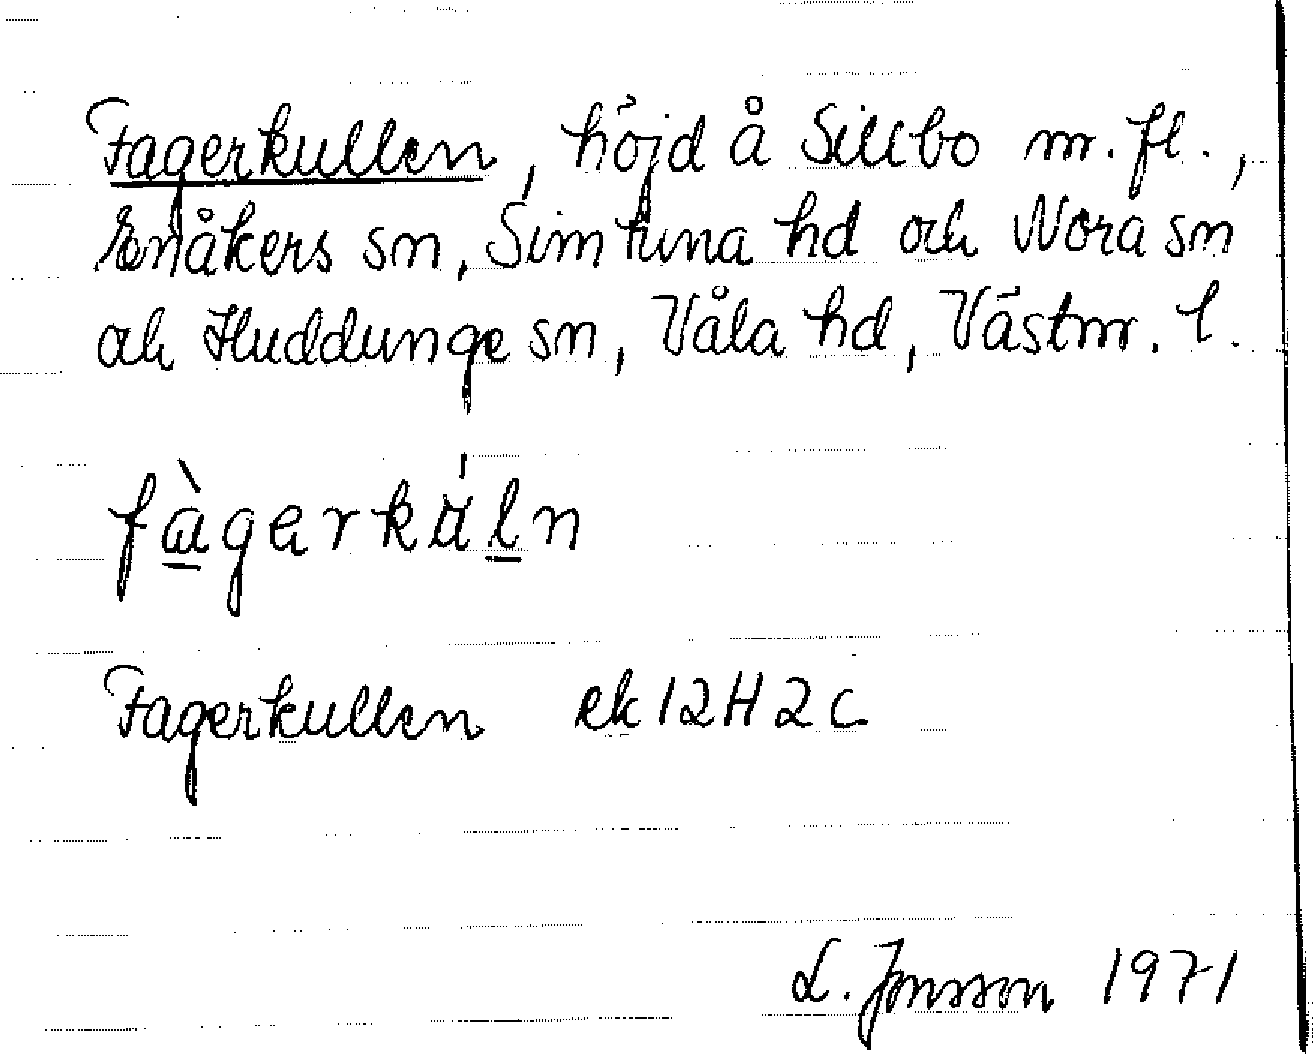 Fagerkullen, höjd å Sillbo m. fl.,
Enåkers sn, Simtuna hd och Nora sn
och Huddunge sn, Våla hd, Västm. l.
fàgerkúln
Fagerkullen ek 12H2c
L. Jonsson 1971